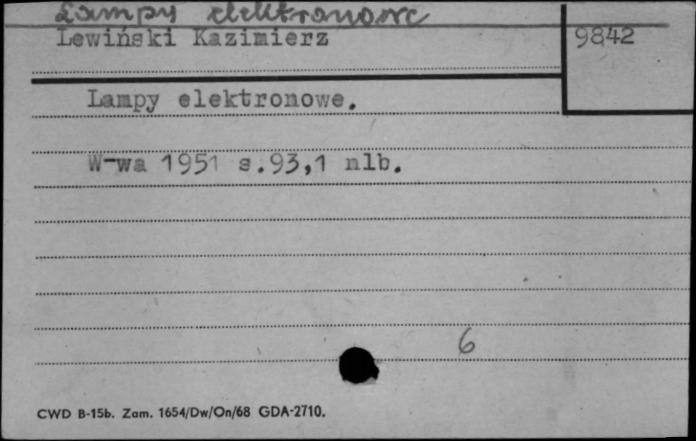 Lampy elektronowe
Lewiński Kazimierz
9842
Lampy elektronowe.
W-wa 1951 s.93,1 nlb.
6
CWD B-15b. Zam. 1654/Dw/On/68 GDA-2710.